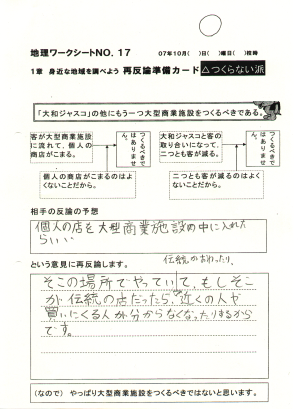 地理ワークシートNO. 17
07年10月( )日( )曜日( )校時
1章 身近な地域を調べよう 再反論準備カード △つくらない派
「大和ジャスコ」の他にもう一つ大型商業施設をつくるべきである。
客が大型商業施設に流れて、個人の商店がこまる。
つくるべきではありません。
大和ジャスコと客の取り合いになって、二つとも客が減る。
つくるべきではありません。
個人の商店がこまるのはよくないことだから。
二つとも客が減るのはよくないことだから。
相手の反論の予想
個人の店を大型商業施設の中に入れたらいい
という意見に再反論します。
伝統のおわったり、
そこの場所でやっていて、もしそこ
が伝統の店だったら、近くの人や
買いにくる人が分からなくなったりするから
です。
(なので) やっぱり大型商業施設をつくるべきではないと思います。